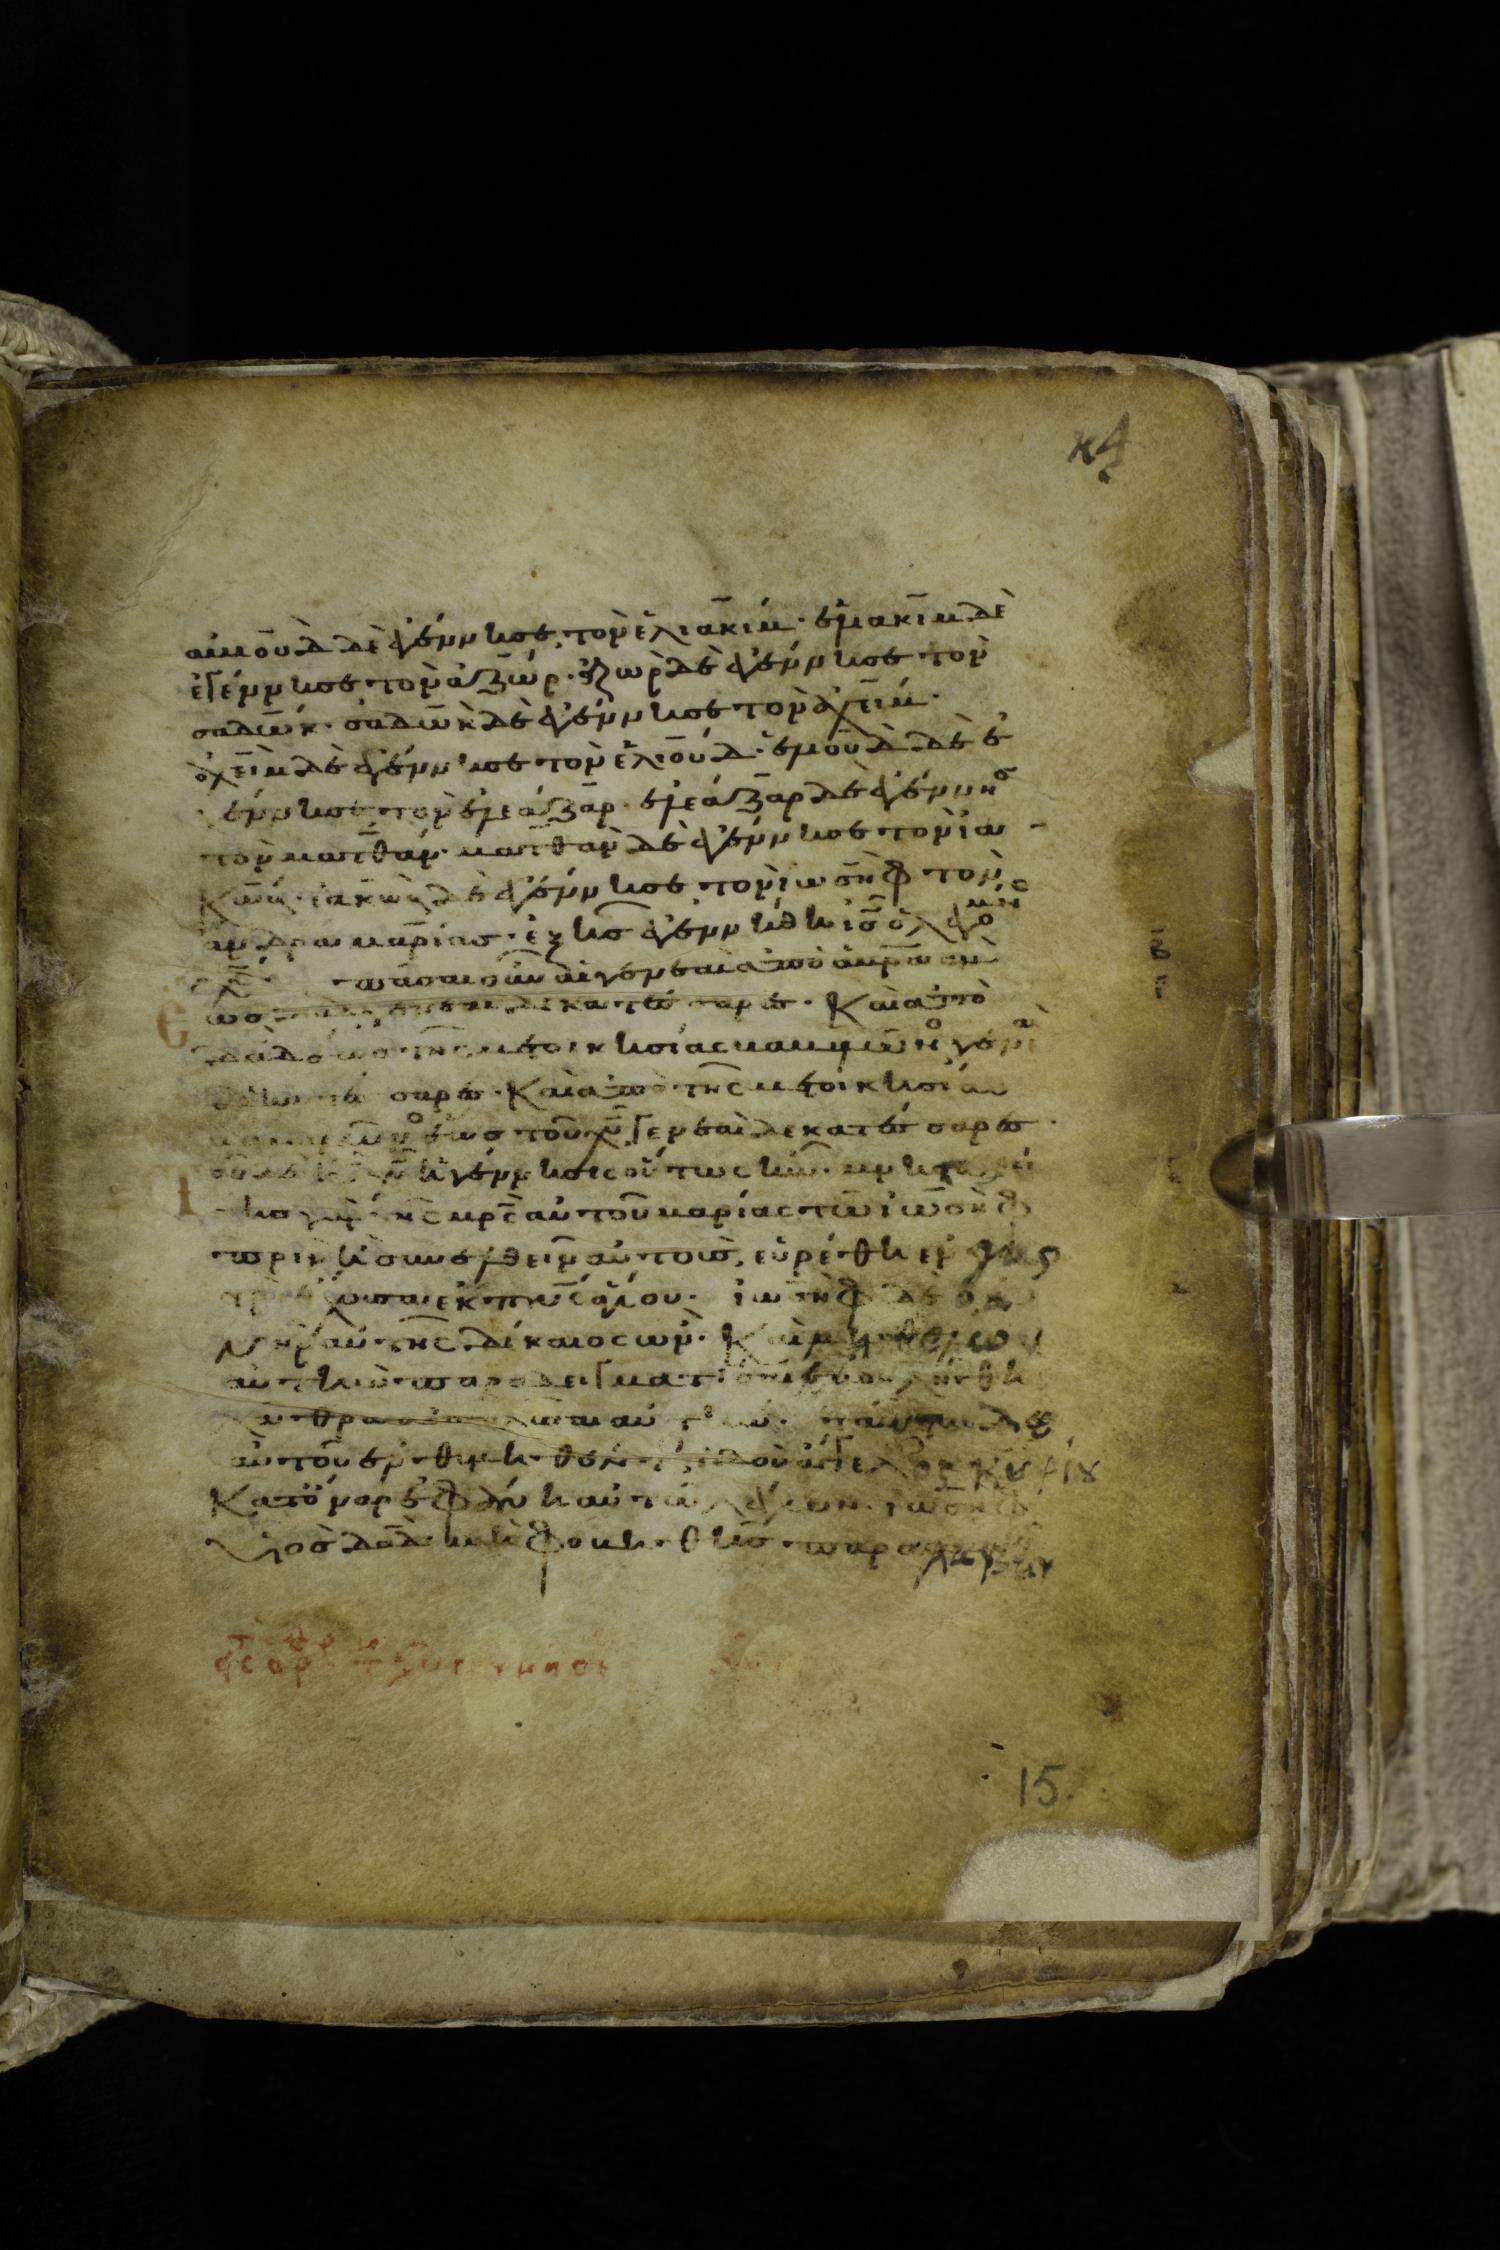 κδ
αμιοὺδ δὲ ἐγέννησε τὸν ἐλιακίμ· ἐλιακὶμ δὲ
ἐγέννησε τὸν ἀζώρ· ἀζὼρ δὲ ἐγέννησε τὸν
σαδώκ· σαδὼκ δὲ ἐγέννησε τὸν ἀχείμ·
ἀχεὶμ δὲ ἐγέννησε τὸν ἐλιούδ· ἐλιοὺδ δὲ ἐ
γέννησε τὸν ἐλεάζαρ· ἐλεάζαρ δὲ ἐγέννησε
τὸν ματθάν· ματθὰν δὲ ἐγέννησε τὸν ἰα
κώβ· ἰακὼβ δὲ ἐγέννησε τὸν ἰωσὴφ τὸν
ἄνδρα μαρίας· ἐξ ἧς ἐγεννήθη ἰς ὁ λεγόμενος
χς· πᾶσαι οὖν αἱ γενεαὶ ἀπὸ ἀβραὰμ
ἕως δεκατέσσαρες· καὶ ἀπὸ
δαδ ἕως τῆς μετοικησίας βαβυλῶνος γενεαὶ
δεκατέσσαρες· καὶ ἀπὸ τῆς μετοικησίας
βαβυλῶνος ἕως τοῦ χυ γενεαὶ δεκατέσσαρες·
τοῦ δὲ ἰυ χυ ἡ γέννησις οὕτως ἦν· μνηστευθεί
σης γὰρ τῆς μρς αὐτοῦ μαρίας τῶ ἰωσὴφ
πρὶν ἢ συνελθεῖν αὐτοὺς, εὑρέθη ἐν γας
τρὶ ἔχουσα ἐκ πνς ἁγίου· ἰωσὴφ δὲ ὁ ἀ
νὴρ αὐτῆς δίκαιος ὢν· καὶ μὴ θέλων
αὐτὴν παραδειγματίσαι ἐβουλήθη
λάθρα ἀπολῦσαι αὐτήν· ταῦτα δὲ
αὐτοῦ ἐνθυμηθέντος ἰδοὺ ἄγγελος κυρίου
κατ' ὄναρ ἐφάνη αὐτῶ λέγων· ἰωσὴφ
υἱὸς δαδ μὴ φοβηθῆς παραλαβεῖν
15